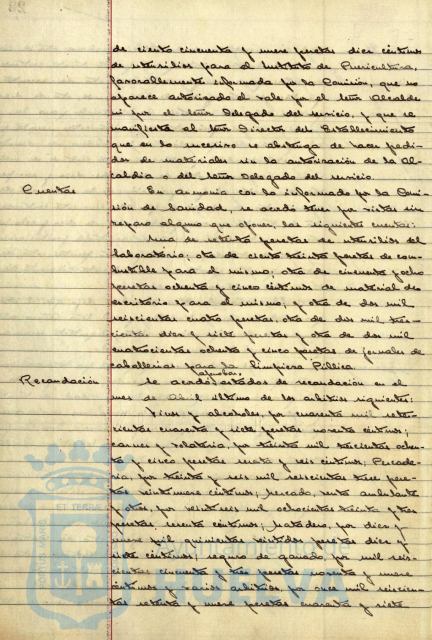 de ciento cincuenta y nueve pesetas diez céntimos
de utensilios para el Instituto de Puericultura,
favorablemente informada por la Comisión, que no
aparece autorizado el vale por el Señor Alcalde
ni por el Señor Delegado del servicio, y que se
manifieste al Señor Director del Establecimiento
que en lo sucesivo se abstenga de hacer pedi-
dos de materiales sin la autorización de la Al-
caldía o del Señor Delegado del servicio.
Cuentas
En armonía con lo informado por la Comi-
sión de Sanidad, se acordó tener por vistas sin
reparo alguno que oponer, las siguientes cuentas:
Una de setenta pesetas de utensilios del
laboratorio; otra de ciento treinta pesetas de com-
bustible para el mismo; otra de cincuenta y ocho
pesetas ochenta y cinco céntimos de material de
escritorio para el mismo, y otra de dos mil
seiscientas cuatro pesetas, otra de dos mil tres-
cientas diez y siete pesetas y otra de dos mil
cuatrocientas ochenta y cinco pesetas de jornales de
caballerías para la Limpieza Pública.
Recaudación
Se acordó aprobar estados de recaudación en el
mes de Abril último de los arbitrios siguientes:
Vinos y alcoholes, por cuarenta mil sete-
cientas cuarenta y siete pesetas noventa céntimos;
carnes y volatería, por treinta mil trescientas ochen-
ta y cinco pesetas y seis céntimos; Pescade-
ría, por treinta y seis mil seiscientas trece pese-
tas veintinueve céntimos; mercado, venta ambulante
y otros, por veintiseis mil ochocientas treinta y tres
pesetas, céntimos; Matadero, por diez y
nueve mil quinientas veintidos pesetas diez y
siete céntimos; seguro de ganado, por mil seis-
cientas cincuenta y tres pesetas noventa y nueve
céntimos y varios arbitrios, por once mil seiscien-
tas setenta y nueve pesetas cuarenta y siete
ET TERRAE